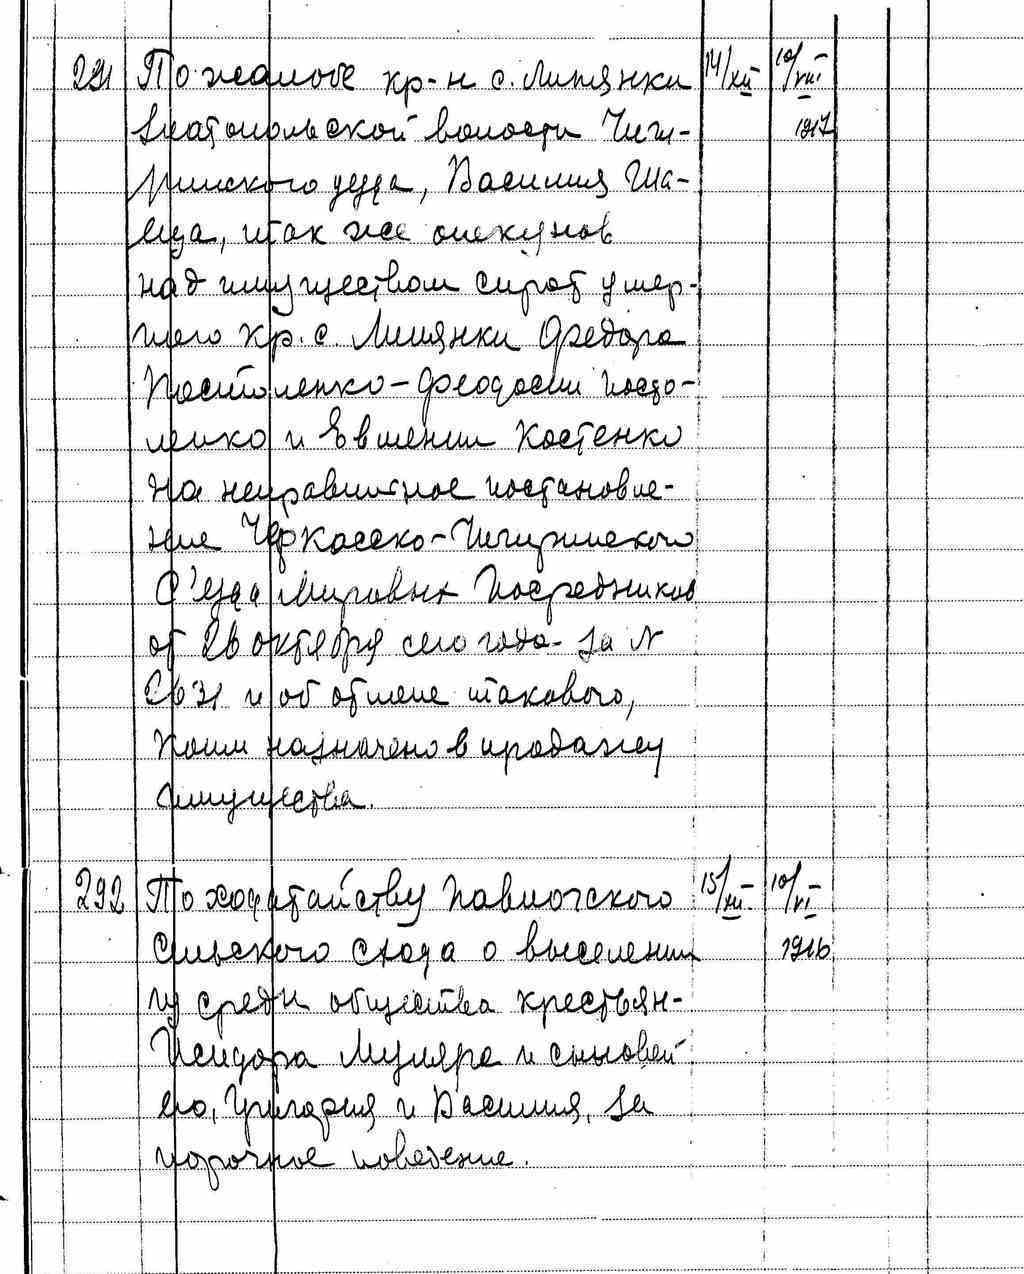 291 По жалобе кр-н с. Липянки 14/XII 10/VIII
Златопольской волости Чиги- 1917
ринского уезда, Василия Ша-
а так же опекунов
над имуществом сирот умер-
шего кр. с. Липянки Федора
Постоленко - Феодосии Посто-
ленко и Евгении Костенко
на неправильное постановле-
ние Черкасско-Чигиринского
С'езда Мировых Посредников
от 26 октября сего года за N
2631 и об отмене такового,
коим назначено в продажу
имущества.
292 По ходатайству Павловского 15/XII 10/VI
сельского схода о выселении 1916
из среды общества крестьян-
Исидора и сыновей
его, и Василия, за
порочное поведение.